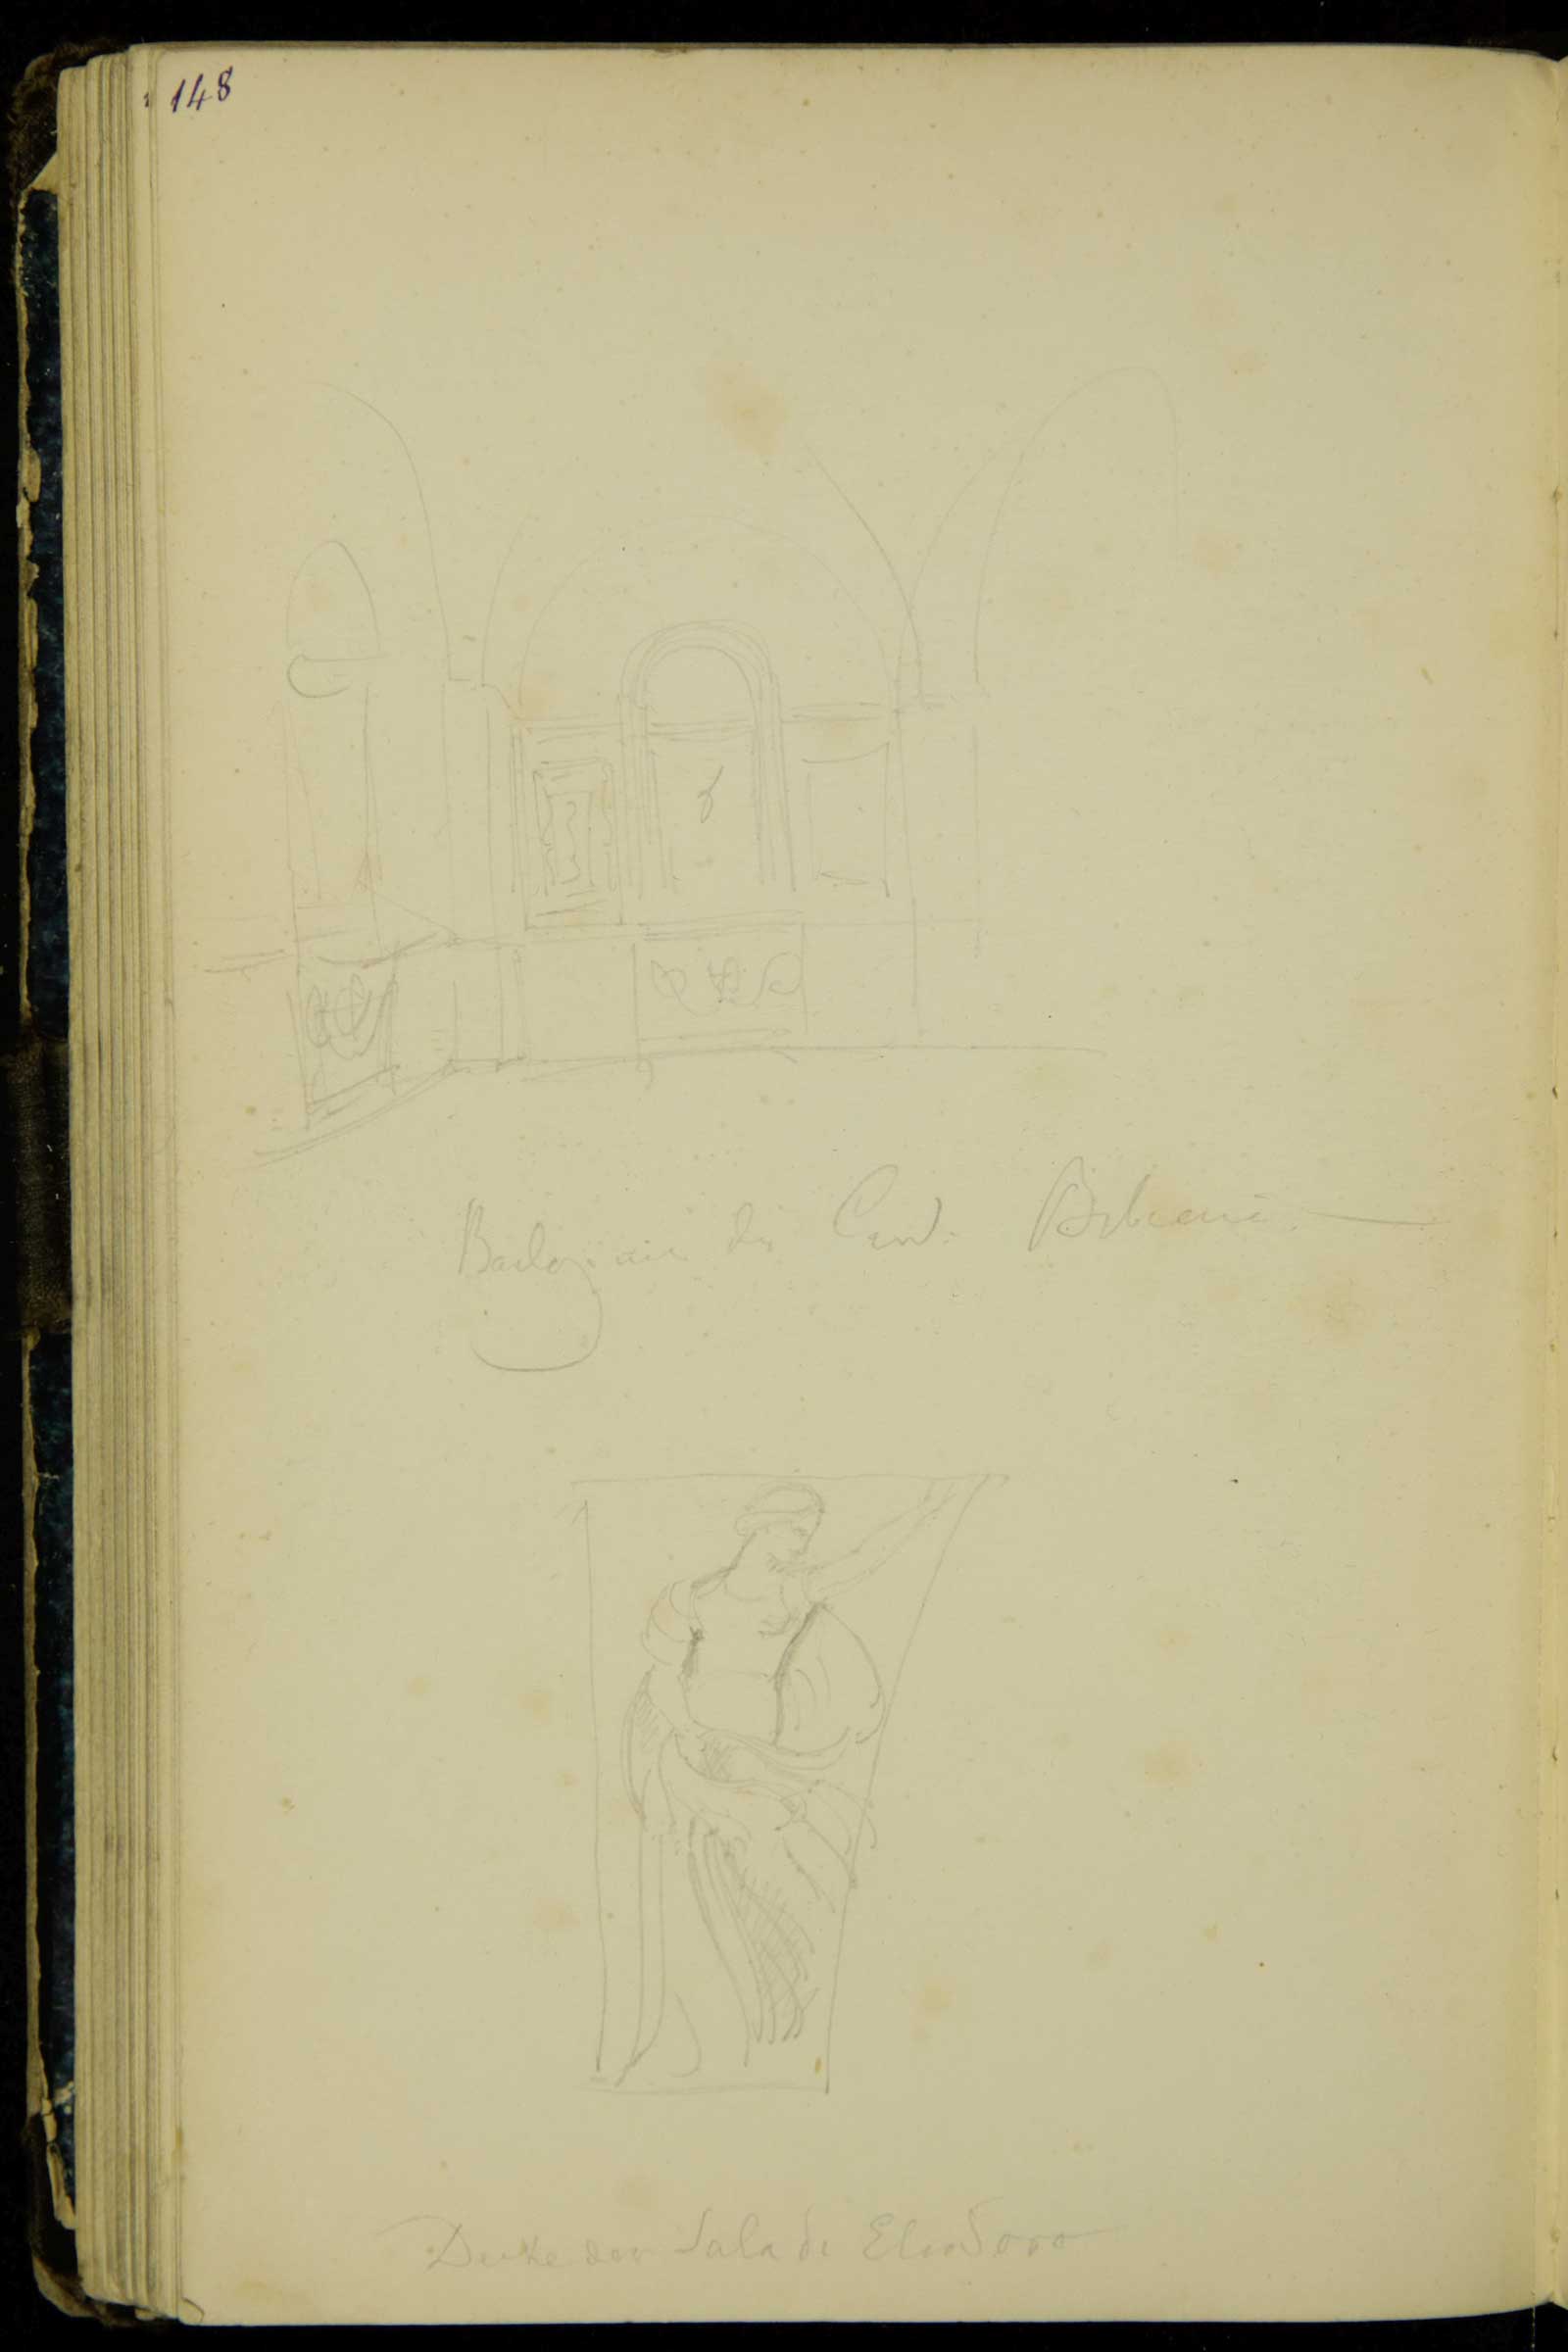 148
Badezim̅ des Card. Bibiena
Decke der Sala di Eliodoro